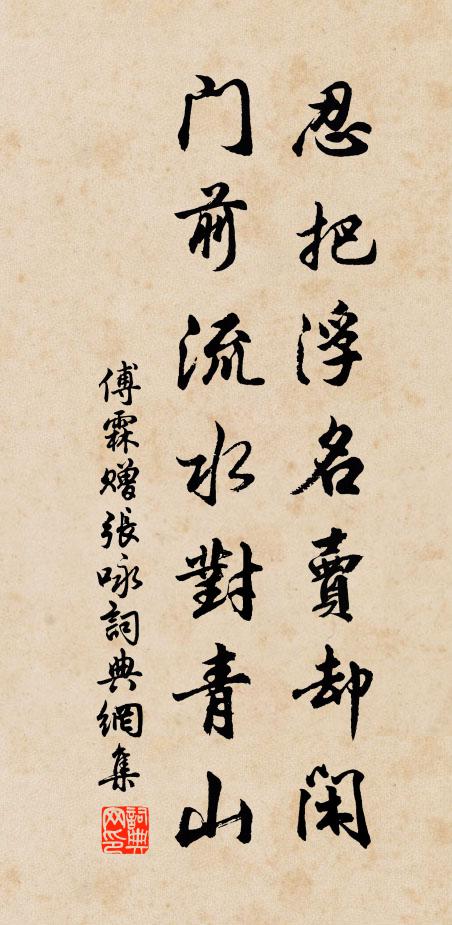 忍把浮名賣却閑
門前流水對青山
傅霖赠張咏詞典網集
詞典网印